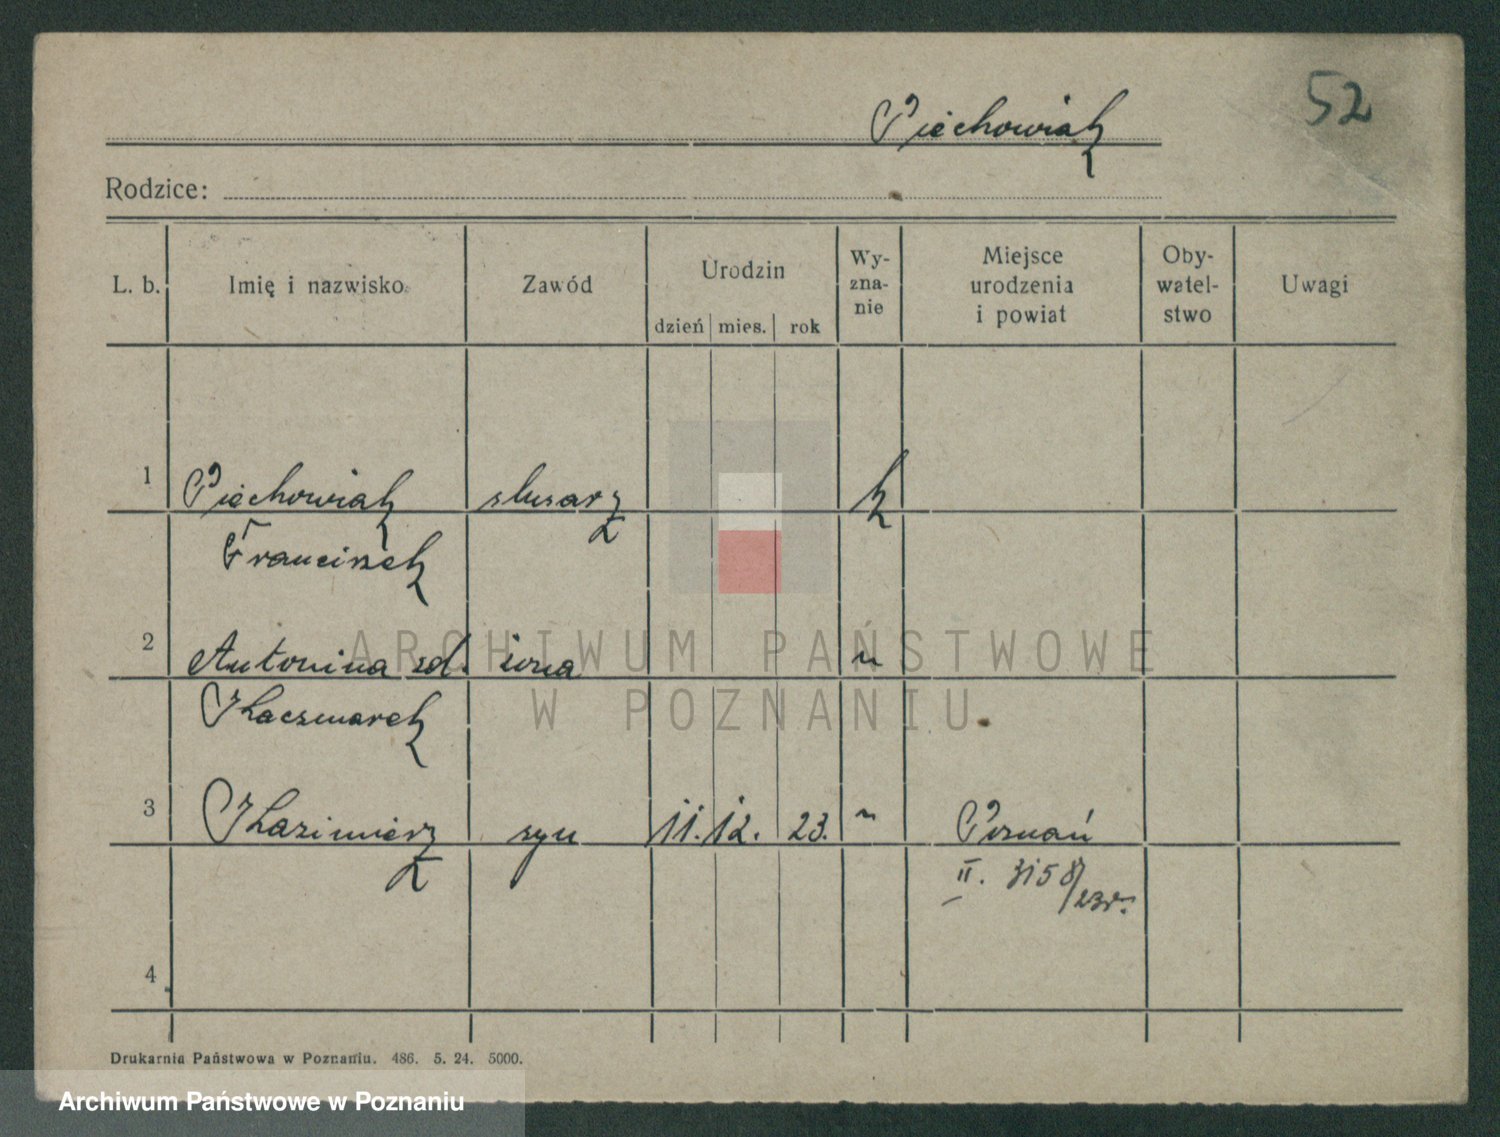 52
Piechowiak
Rodzice:
L. b.
Imię i nazwisko
Zawód
Urodzin
dzień
mies.
rok
Wy-
zna-
nie
Miejsce
urodzenia
i powiat
Oby-
watel-
stwo
Uwagi
1 Piechowiak slusarz k
Franciszek
2 Antonina zd. żona "
Kaczmarek
3 Kazimierz syn 11. 12. 23. " Poznań
II. 3158/23r.
4
ARCHIWUM PAŃSTWOWE
W POZNANIU
Drukarnia Państwowa w Poznaniu. 486. 5. 24. 5000.
Archiwum Państwowe w Poznaniu